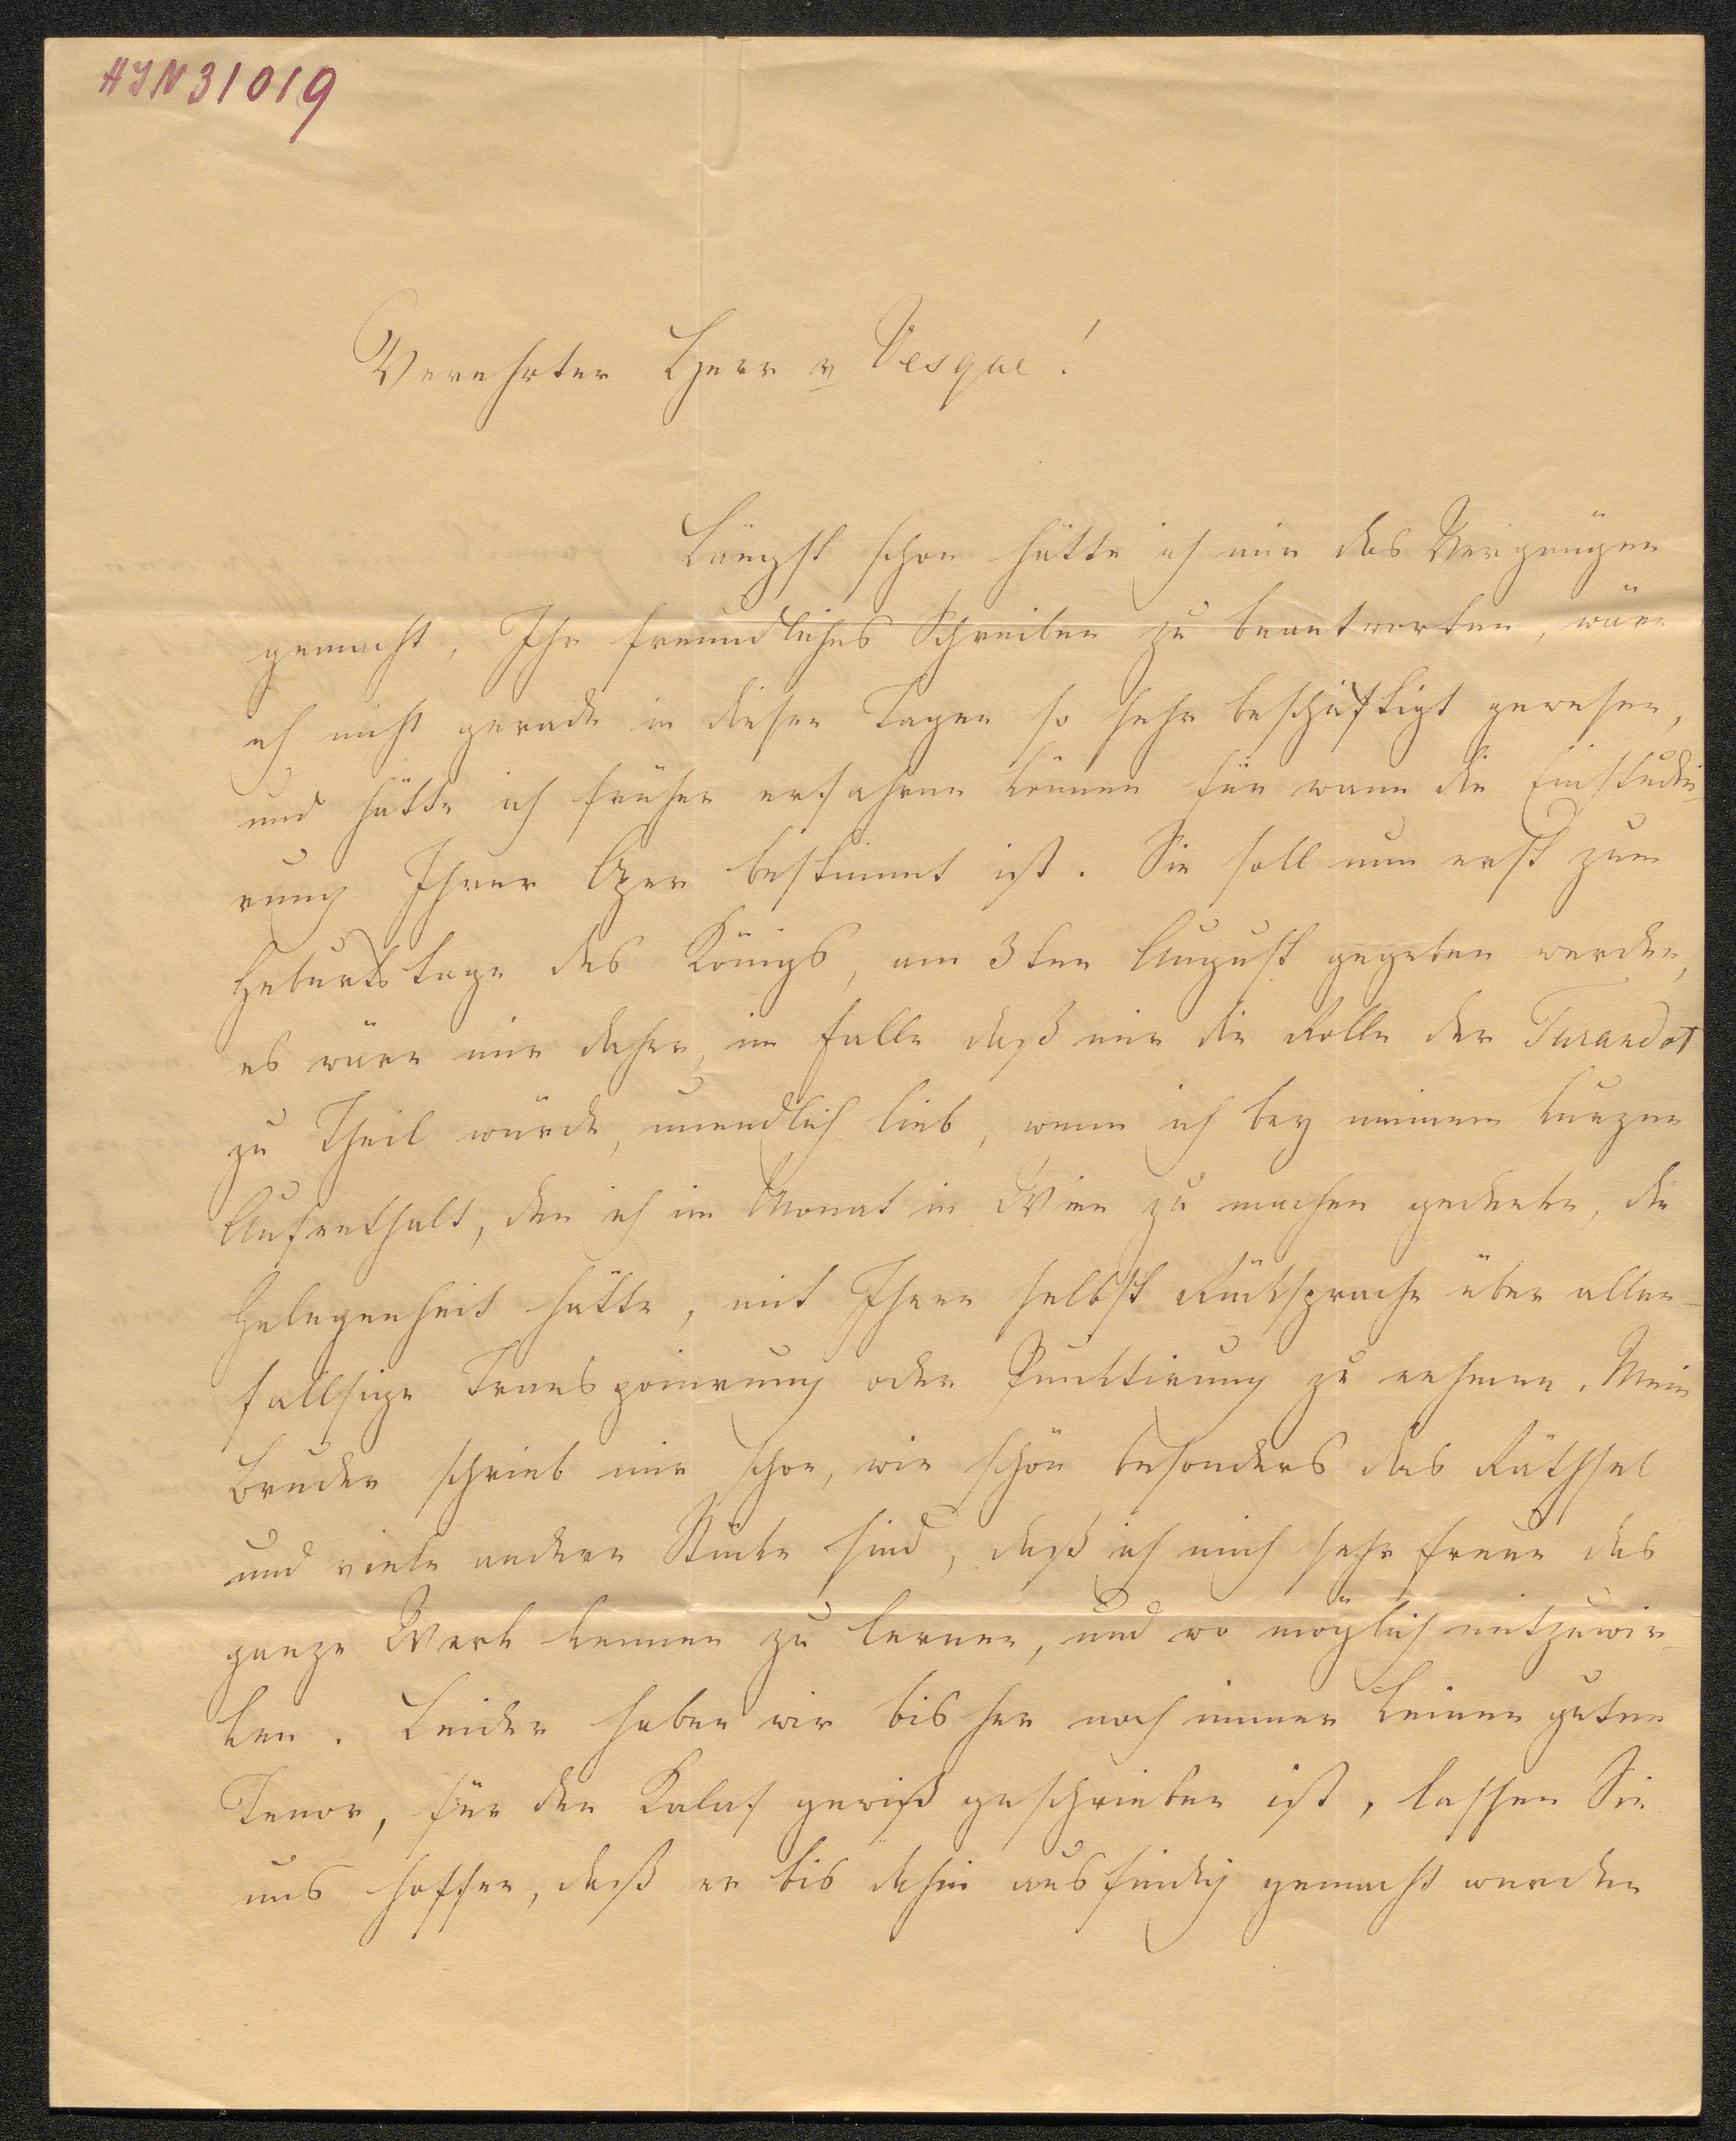 HIN 31019
Verehrter Herr v Vesque!
Längst schon hätte ich mir das Vergnügen
gemacht, Ihr freundliches Schreiben zu beantworten, wäre
ich nicht gerade in diesen Tagen so sehr beschäftigt gewesen,
und hätte ich früher erfahren können für wann die Einstudi-
rung Ihrer Oper bestimmt ist. Sie soll nun erst zum
Geburtstage des Königs, am 3ten August gegeben werden,
es wäre mir daher, im Falle daß mir die Rolle der Turandot
zu Theil würde, unendlich lieb, wenn ich bey meinem kurzen
Aufenthalt, den ich im Monat in Wien zu machen gedenke, die
Gelegenheit hätte, mit Ihnen selbst Rücksprache über allen-
fallsige Transponirung oder Punktirung zu nehmen. Mein
Bruder schrieb mir schon, wie schön besonders das Räthsel
und viele andere Stücke sind, daß ich mich sehr freue das
ganze Werk kennen zu lernen, und wo möglich mitzuwir-
ken. Leider haben wir bisher noch immer keinen guten
Tenor, für den Kalaf gewiß geschrieben ist, lassen Sie
uns hoffen, daß er bis dahin ausfindig gemacht werden